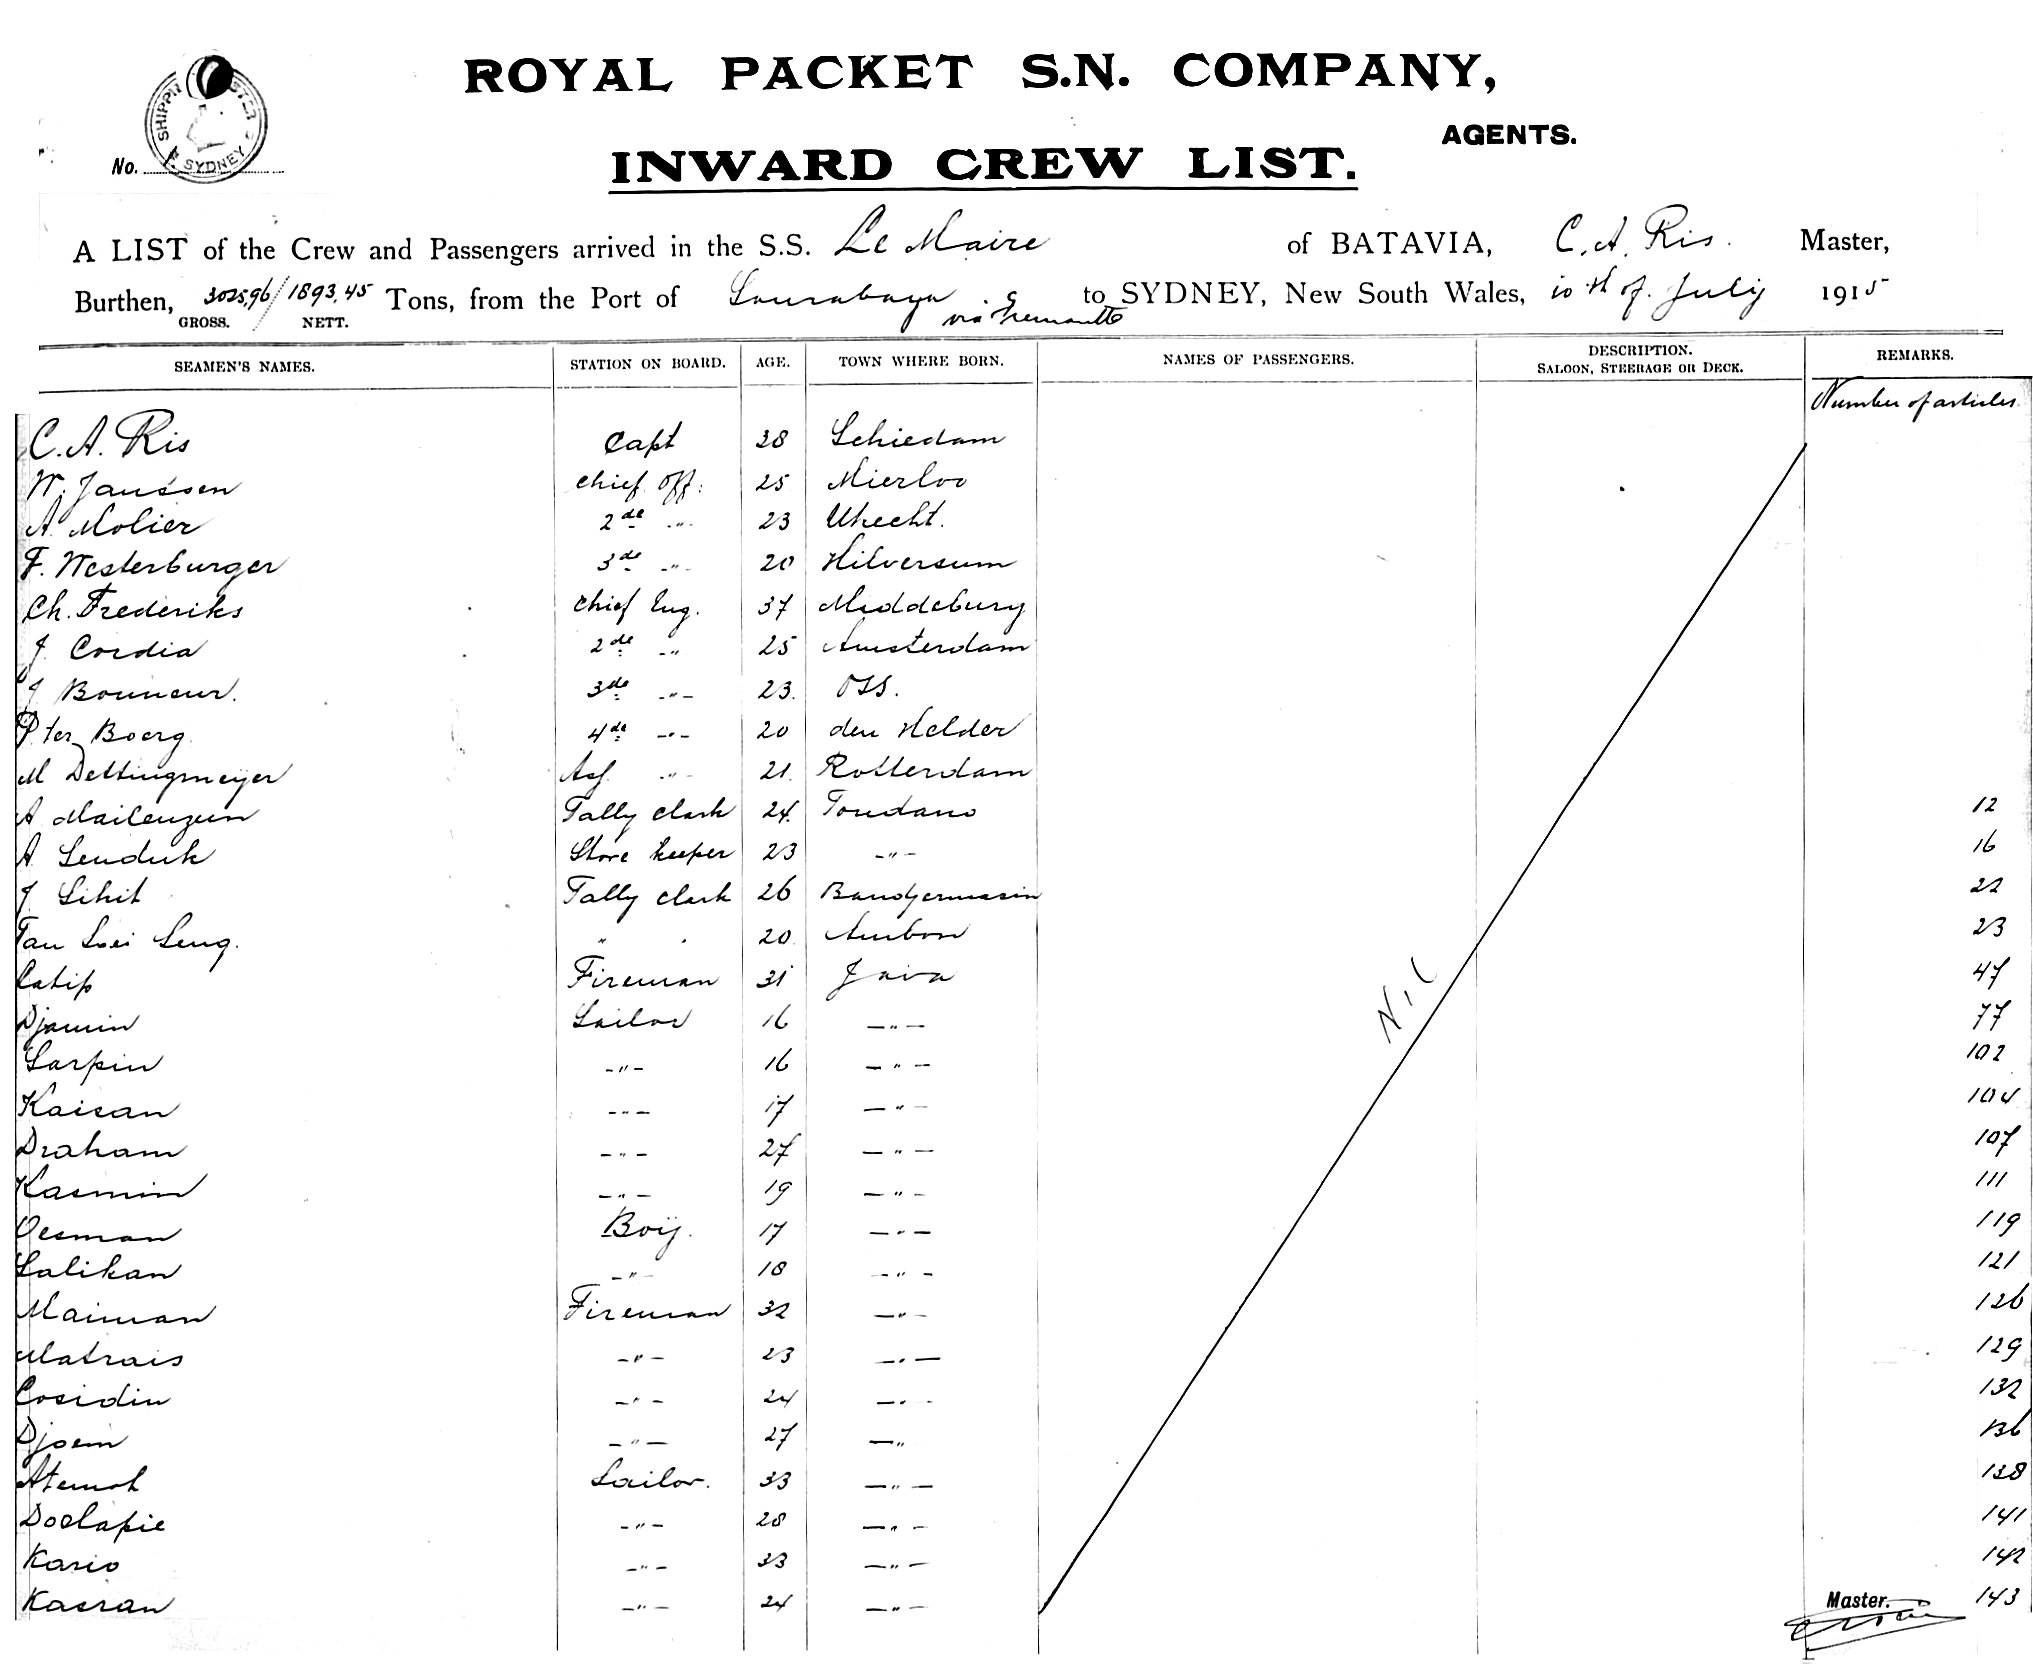 ROYAL PACKET S.N. COMPANY,
AGENTS.
SYDNEY
No.
INWARD CREW LIST.
A LIST of the Crew and Passengers arrived in the S.S. Le Maire of BATAVIA, C. A. Ris. Master,
Burthen, 3025,96/1893,45 Tons, from the Port of Sourabaya to SYDNEY, New South Wales, 10th of July 1915
GROSS. NETT. via Fremantle
SEAMEN'S NAMES. STATION ON BOARD. AGE. TOWN WHERE BORN. NAMES OF PASSENGERS. DESCRIPTION. SALOON, STEERAGE OR DECK. REMARKS.
Number of articles
C. A. Ris Capt 38 Schiedam
W. Janssen chief off: 25 Mierloo
A. Molier 2de -"- 23 Utrecht.
F. Westerburger 3de -"- 20 Hilversum
Ch. Frederiks chief Eng. 37 Middeburg
J Cordia 2de -"- 25 Amsterdam
J Bouneur. 3de -"- 23. Oss.
P. ter Boerg 4de -"- 20 den Helder
M Dettingmeijer Ass. -"- 21. Rotterdam
A Mailenzun Tally clark 24. Tondano 12
A Senduk Store keeper 23 -"- 16
J Sihit Tally clark 26 Bandjermasin 22
Tan Soei Seng. " 20 Ambon 23
Catip Fireman 31 Java 47
Djamin Sailor 16 -"- 77
Sarpin -"- 16 -"- 102
Kaisan -"- 17 -"- 104
Draham -"- 27 -"- 107
Kasmin -"- 19 -"- 111
Oesman Boij. 17 -"- 119
Salikan -"- 18 -"- 121
Maiman Fireman 32 -"- 126
Matrais -"- 23 -"- 129
Cosidin -"- 24 -"- 132
Djoem -"- 27 -"- 136
Atemoh Sailor. 33 -"- 138
Doelapie -"- 28 -"- 141
Kario -"- 33 -"- 142
Kasran -"- 24 -"- 143
Nil
Master.